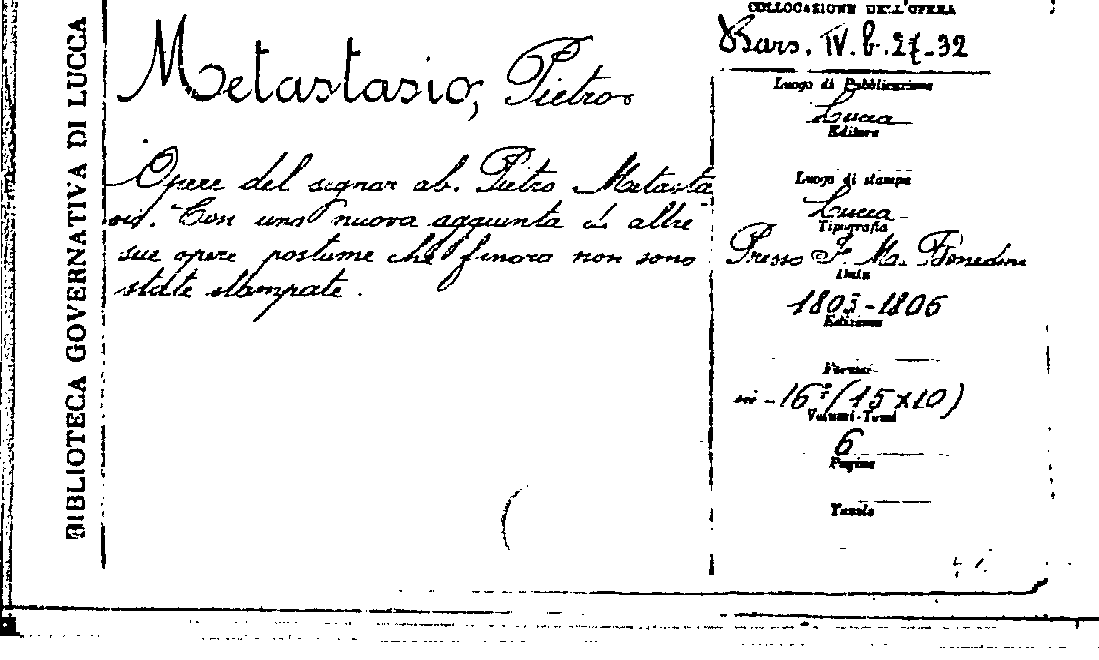 BIBLIOTECA GOVERNATIVA DI LUCCA
Metastasio, Pietro
Opere del signor ab. Pietro Metasta
sio. Con una nuova aggiunta di altre
sue opere postume che finora non sono
state stampate.
COLLOCAZIONE DELL'OPERA
Bars. IV. b. 27-32
Luogo di Pubblicazione
Lucca
Editore
Luogo di stampa
Lucca
Tipografia
Presso F. M. Benedini
Data
1803-1806
Edizione
Formato
in-16° (15x10)
Volumi-Tomi
6
Pagine
Tavole